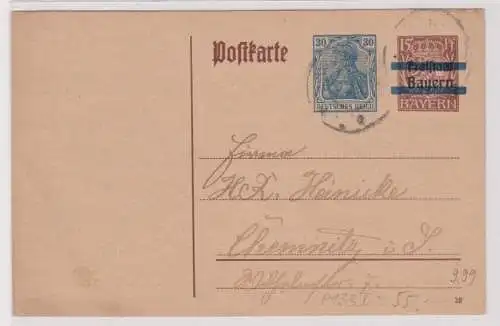 Postkarte
30 30
DEUTSCHES REICH
15 15
Freistaat
Bayern
BAYERN
Firma
H. Heinicke
Chemnitz i. S.
9.99
P133 I -55.-